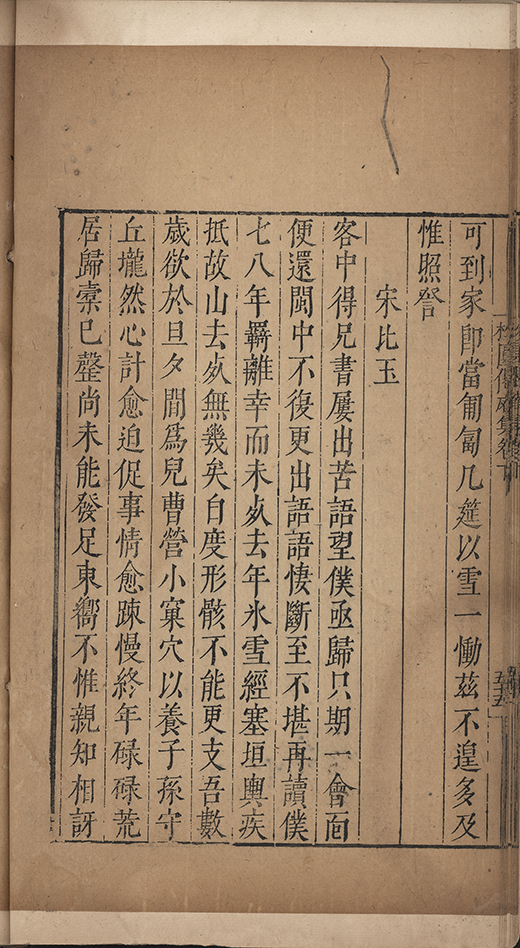 可到家卽當匍匐几筵以雪一慟茲不遑多及
惟照詧
宋比玉
客中得兄書屢出苦語望僕亟歸只期一會面
便還閩中不復更出語語悽斷至不堪再讀僕
七八年羈離幸而未死去年氷雪經塞垣輿疾
抵故山去死無幾矣自度形骸不能更支吾數
歲欲於旦夕間爲兒曹營小窠穴以養子孫守
丘壠然心計愈迫促事情愈踈慢終年碌碌荒
居歸橐已罄尚未能發足東嚮不惟親知相訝